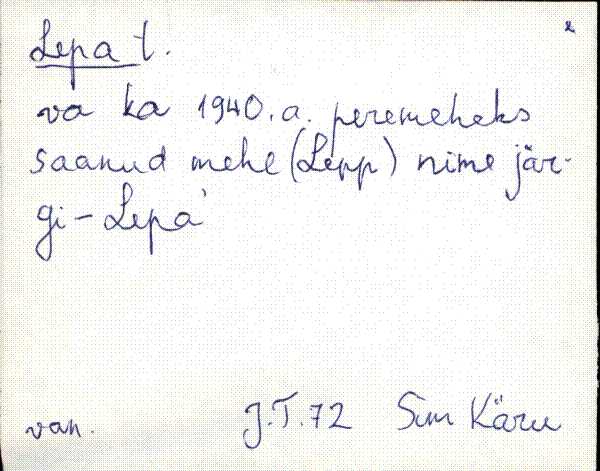 2
Lepa t.
va ka 1940.a. peremeheks
saanud mehe (Lepp) nime jär-
gi - Lepa'
van. J.T.72 Sim Käru